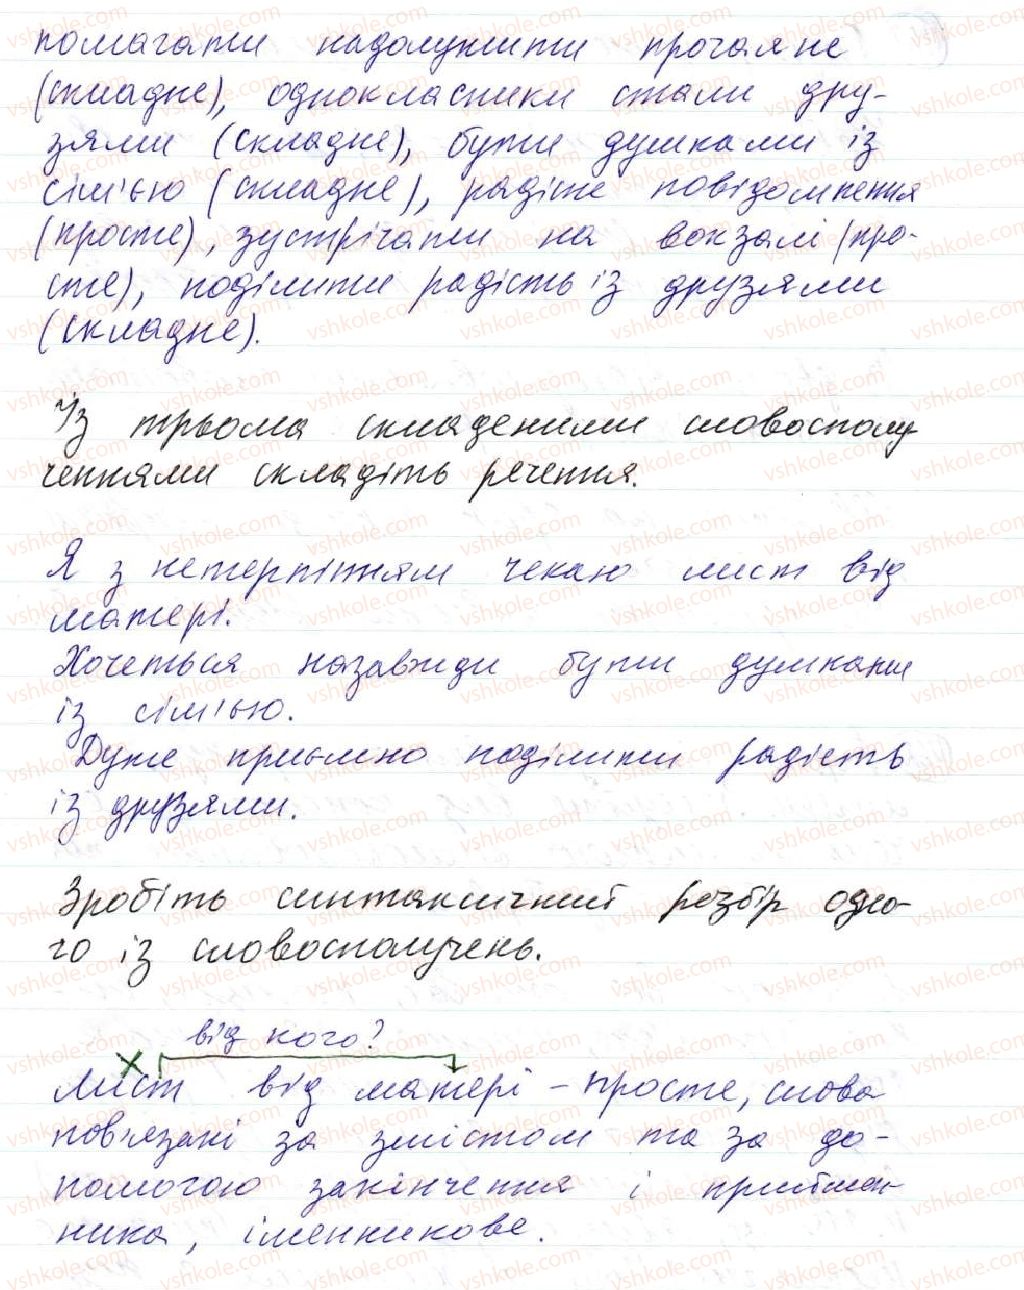 помагати надолужити прогаяне
(складне), однокласники стали дру-
зями (складне), бути думками із
сім'єю (складне), радісне повідомлення
(просте), зустрічати на вокзалі (про-
сте), поділити радість із друзями
(складне).
Із трьома складеними словосполу
ченнями складіть речення.
Я з нетерпінням чекаю лист від
матері.
Хочеться назавжди бути думками
із сім'єю.
Дуже приємно поділити радість
із друзями.
Зробіть синтаксичний розбір одно-
го із словосполучень.
від кого?
Лист від матері – просте, слова
пов'язані за змістом та за до-
помогою закінчення і приймен-
ника, іменникове.